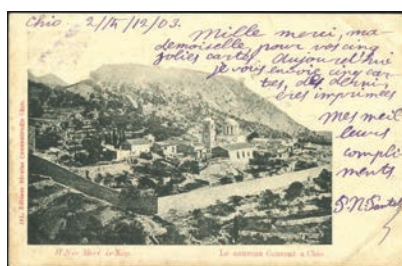 Chio 2/15/12/03.
Mille merci, ma
demoiselle, pour vos cinq
jolies cartes. Aujourd'hui
je vous envoie cinq car
tes, des derni
eres imprimées
Mes meil
leurs
compli
ments
Le nouveau Couvent a Chio